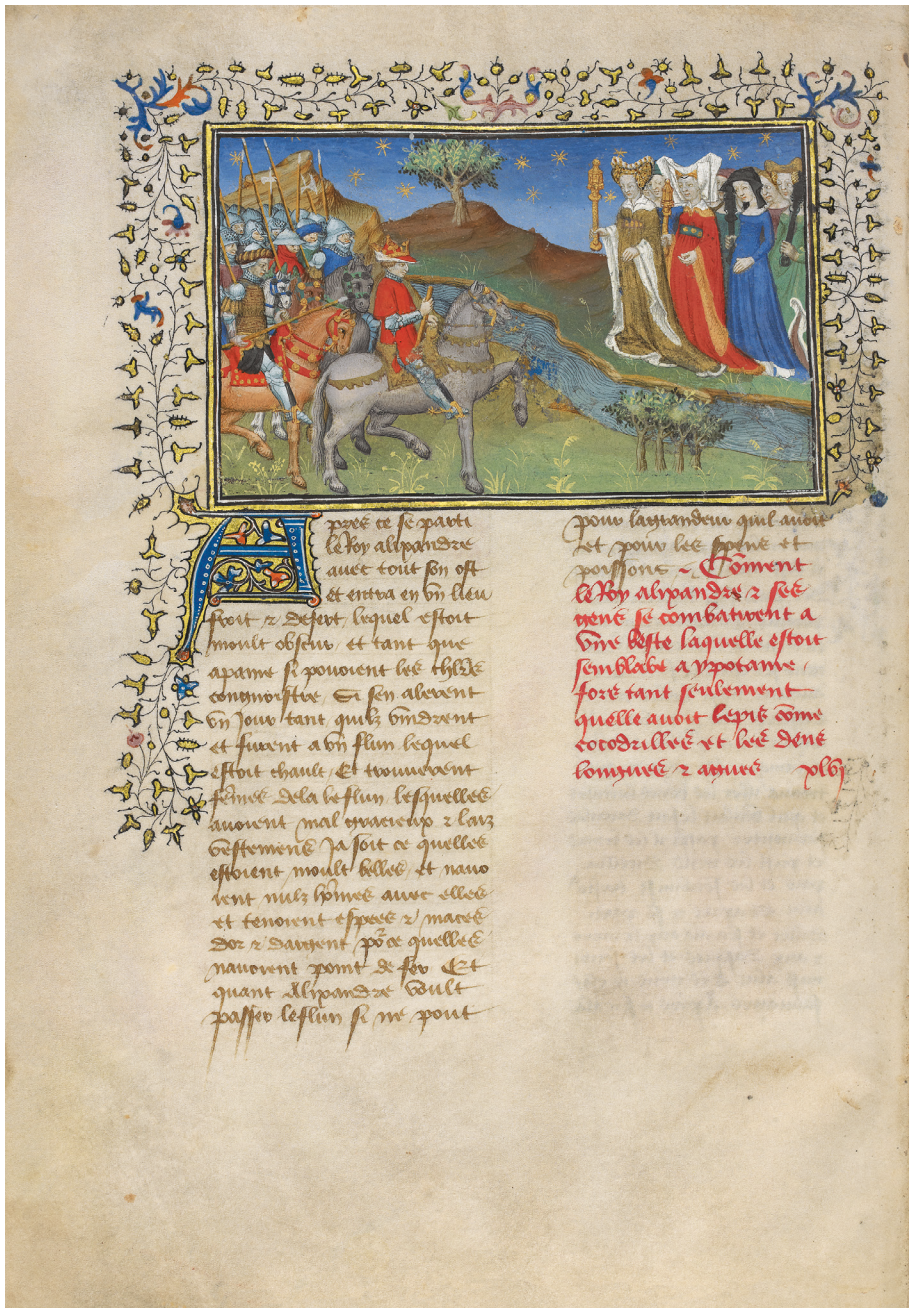 Apres ce se parti
le Roy alixandre
avec tout son ost
et entra en vn lieu
froit & desert lequel estoit
moult obscur, et tant que
apaine si pouoient les chl'rs
congnoistre, Si sen alerent
vn Jour tant quilz vindrent
et furent a vn flun lequel
estoit chault, Et trouuerent
fe͞mes dela le flun lesquelles
auoient mal gracieux & laiz
vestemens Ja soit ce quelles
estoient moult belles, et nauo
ient nulz ho͞mes auec elles
et tenoient espees & maces
dor & dargent po͛ce quelles
nauoient point de fer Et
quant Alixandre voult
passer le flun si ne pout
pour lagrandeur quil auoit
et pour les serpens et
poissons ~ Co͞ment
le Roy alixandre & ses
gens se combatirent a
vne beste laquelle estoit
semblable a ypotame,
fors tant seulement
quelle auoit lepis co͞me
cocodrilles et les dens
longues & agues xlvj